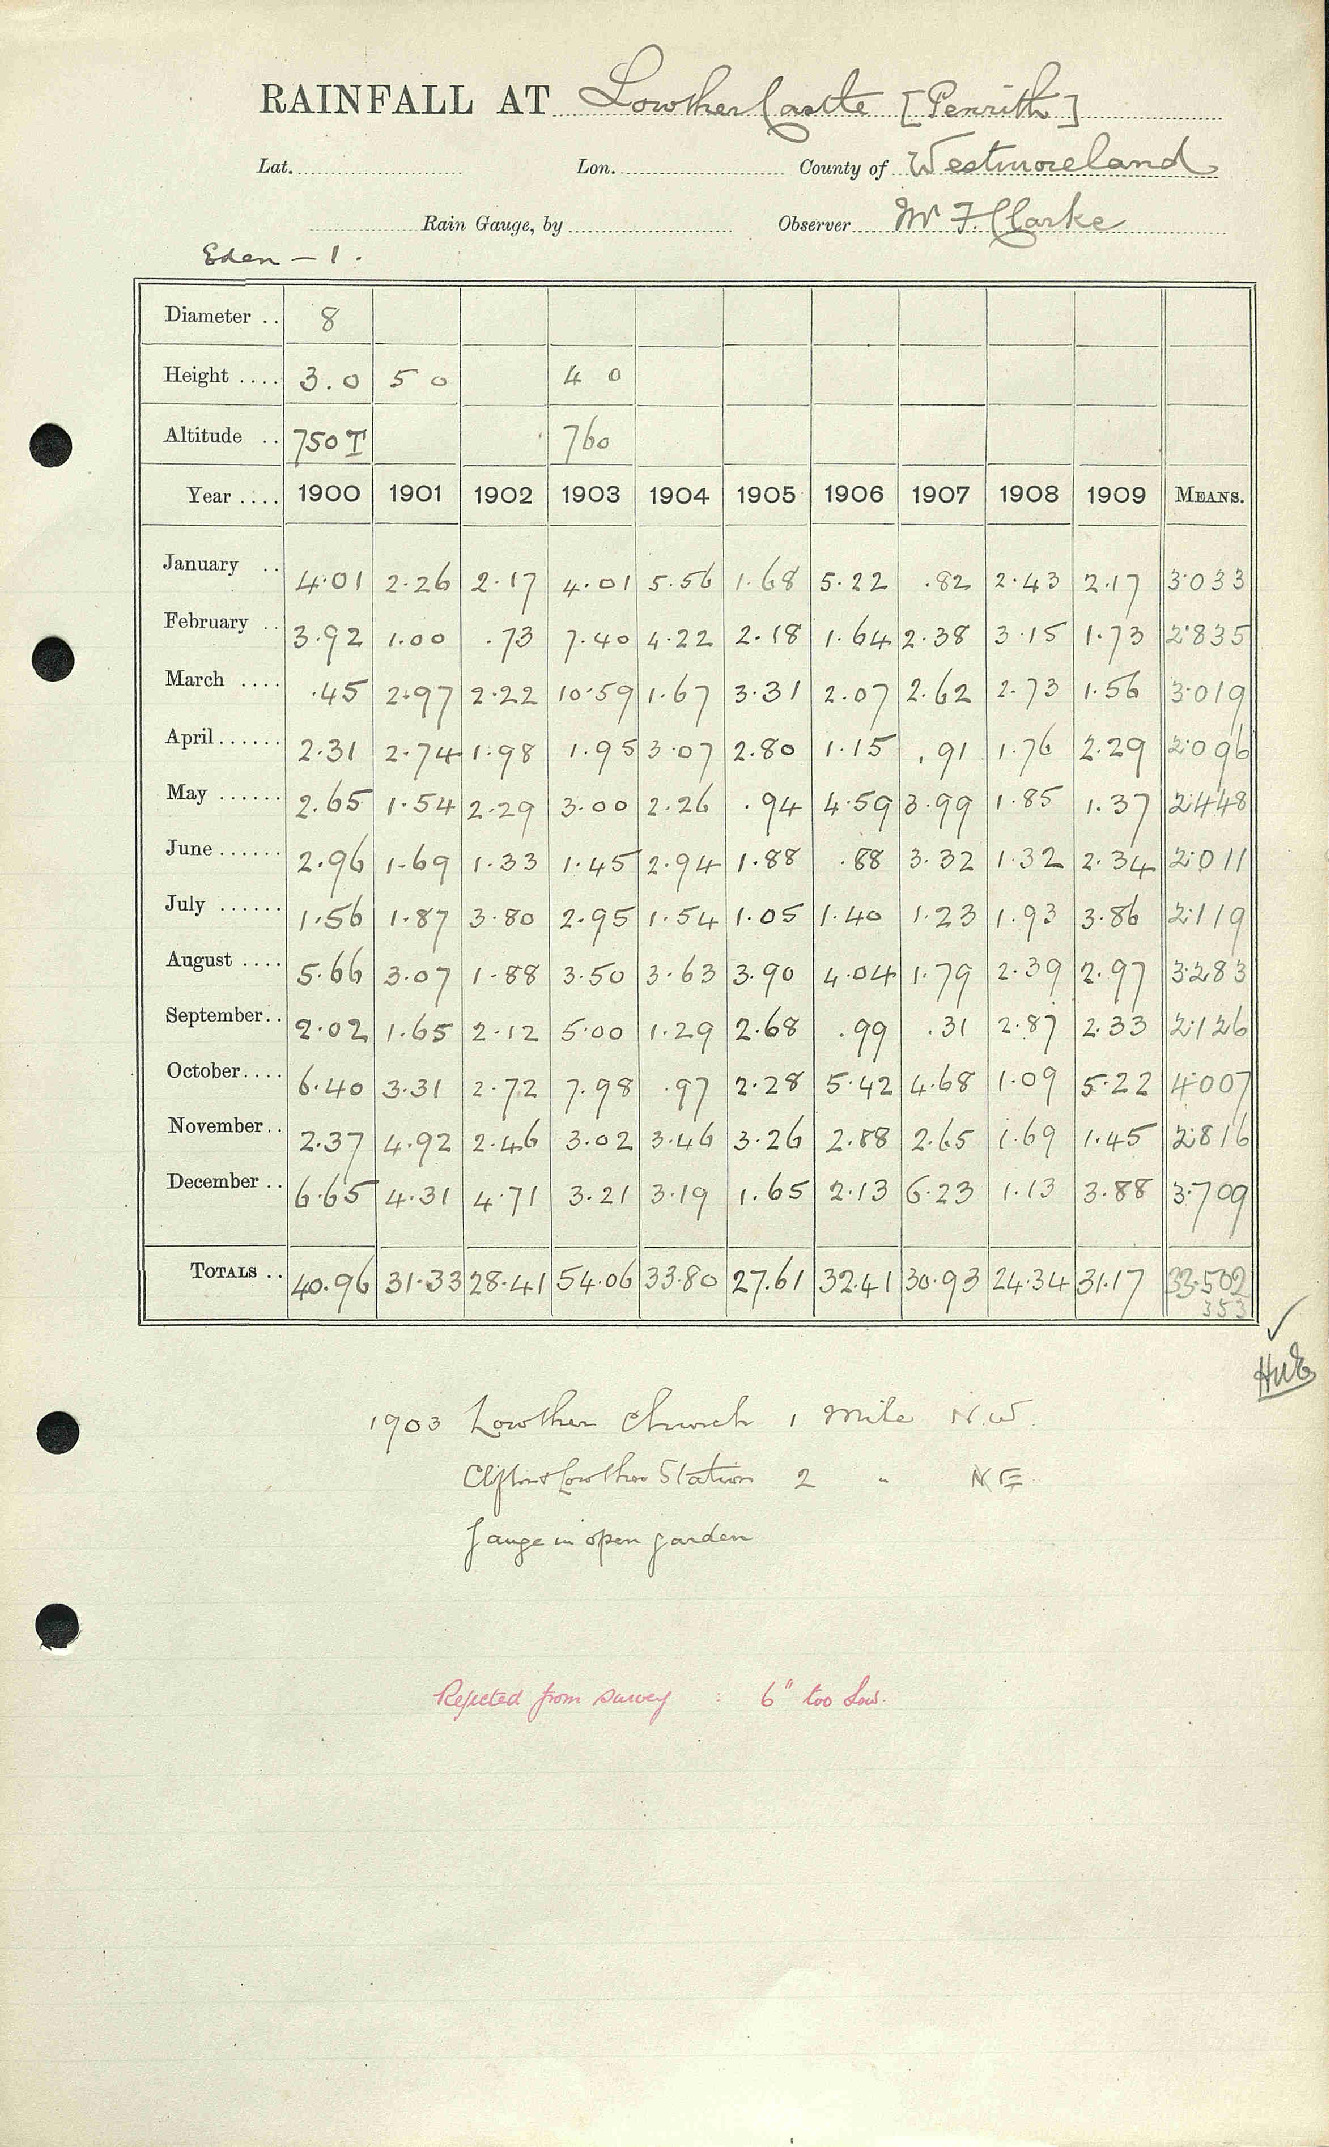 RAINFALL AT Lowther Castle [Penrith]
Lat. Lon. County of Westmoreland
Rain Gauge, by Observer Mr F. Clarke
Eden - 1.
Diameter .. 8
Height .... 3.0 5 0 4 0
Altitude .. 750 T 760
Year .... 1900 1901 1902 1903 1904 1905 1906 1907 1908 1909 MEANS.
January .. 4.01 2.26 2.17 4.01 5.56 1.68 5.22 .82 2.43 2.17 3.033
February .. 3.92 1.00 .73 7.40 4.22 2.18 1.64 2.38 3.15 1.73 2.835
March .... .45 2.97 2.22 10.59 1.67 3.31 2.07 2.62 2.73 1.56 3.019
April ...... 2.31 2.74 1.98 1.95 3.07 2.80 1.15 .91 1.76 2.29 2.096
May ...... 2.65 1.54 2.29 3.00 2.26 .94 4.59 3.99 1.85 1.37 2.448
June ...... 2.96 1.69 1.33 1.45 2.94 1.88 .88 3.32 1.32 2.34 2.011
July ...... 1.56 1.87 3.80 2.95 1.54 1.05 1.40 1.23 1.93 3.86 2.119
August .... 5.66 3.07 1.88 3.50 3.63 3.90 4.04 1.79 2.39 2.97 3.283
September.. 2.02 1.65 2.12 5.00 1.29 2.68 .99 .31 2.87 2.33 2.126
October.... 6.40 3.31 2.72 7.98 .97 2.28 5.42 4.68 1.09 5.22 4.007
November.. 2.37 4.92 2.46 3.02 3.46 3.26 2.88 2.65 1.69 1.45 2.816
December .. 6.65 4.31 4.71 3.21 3.19 1.65 2.13 6.23 1.13 3.88 3.709
TOTALS .. 40.96 31.33 28.41 54.06 33.80 27.61 32.41 30.93 24.34 31.17 33.502
353
1903 Lowther Church 1 Mile N.W.
Clifton & Lowther Station 2 " NE
Gauge in open garden
Rejected from survey : 6" too low.